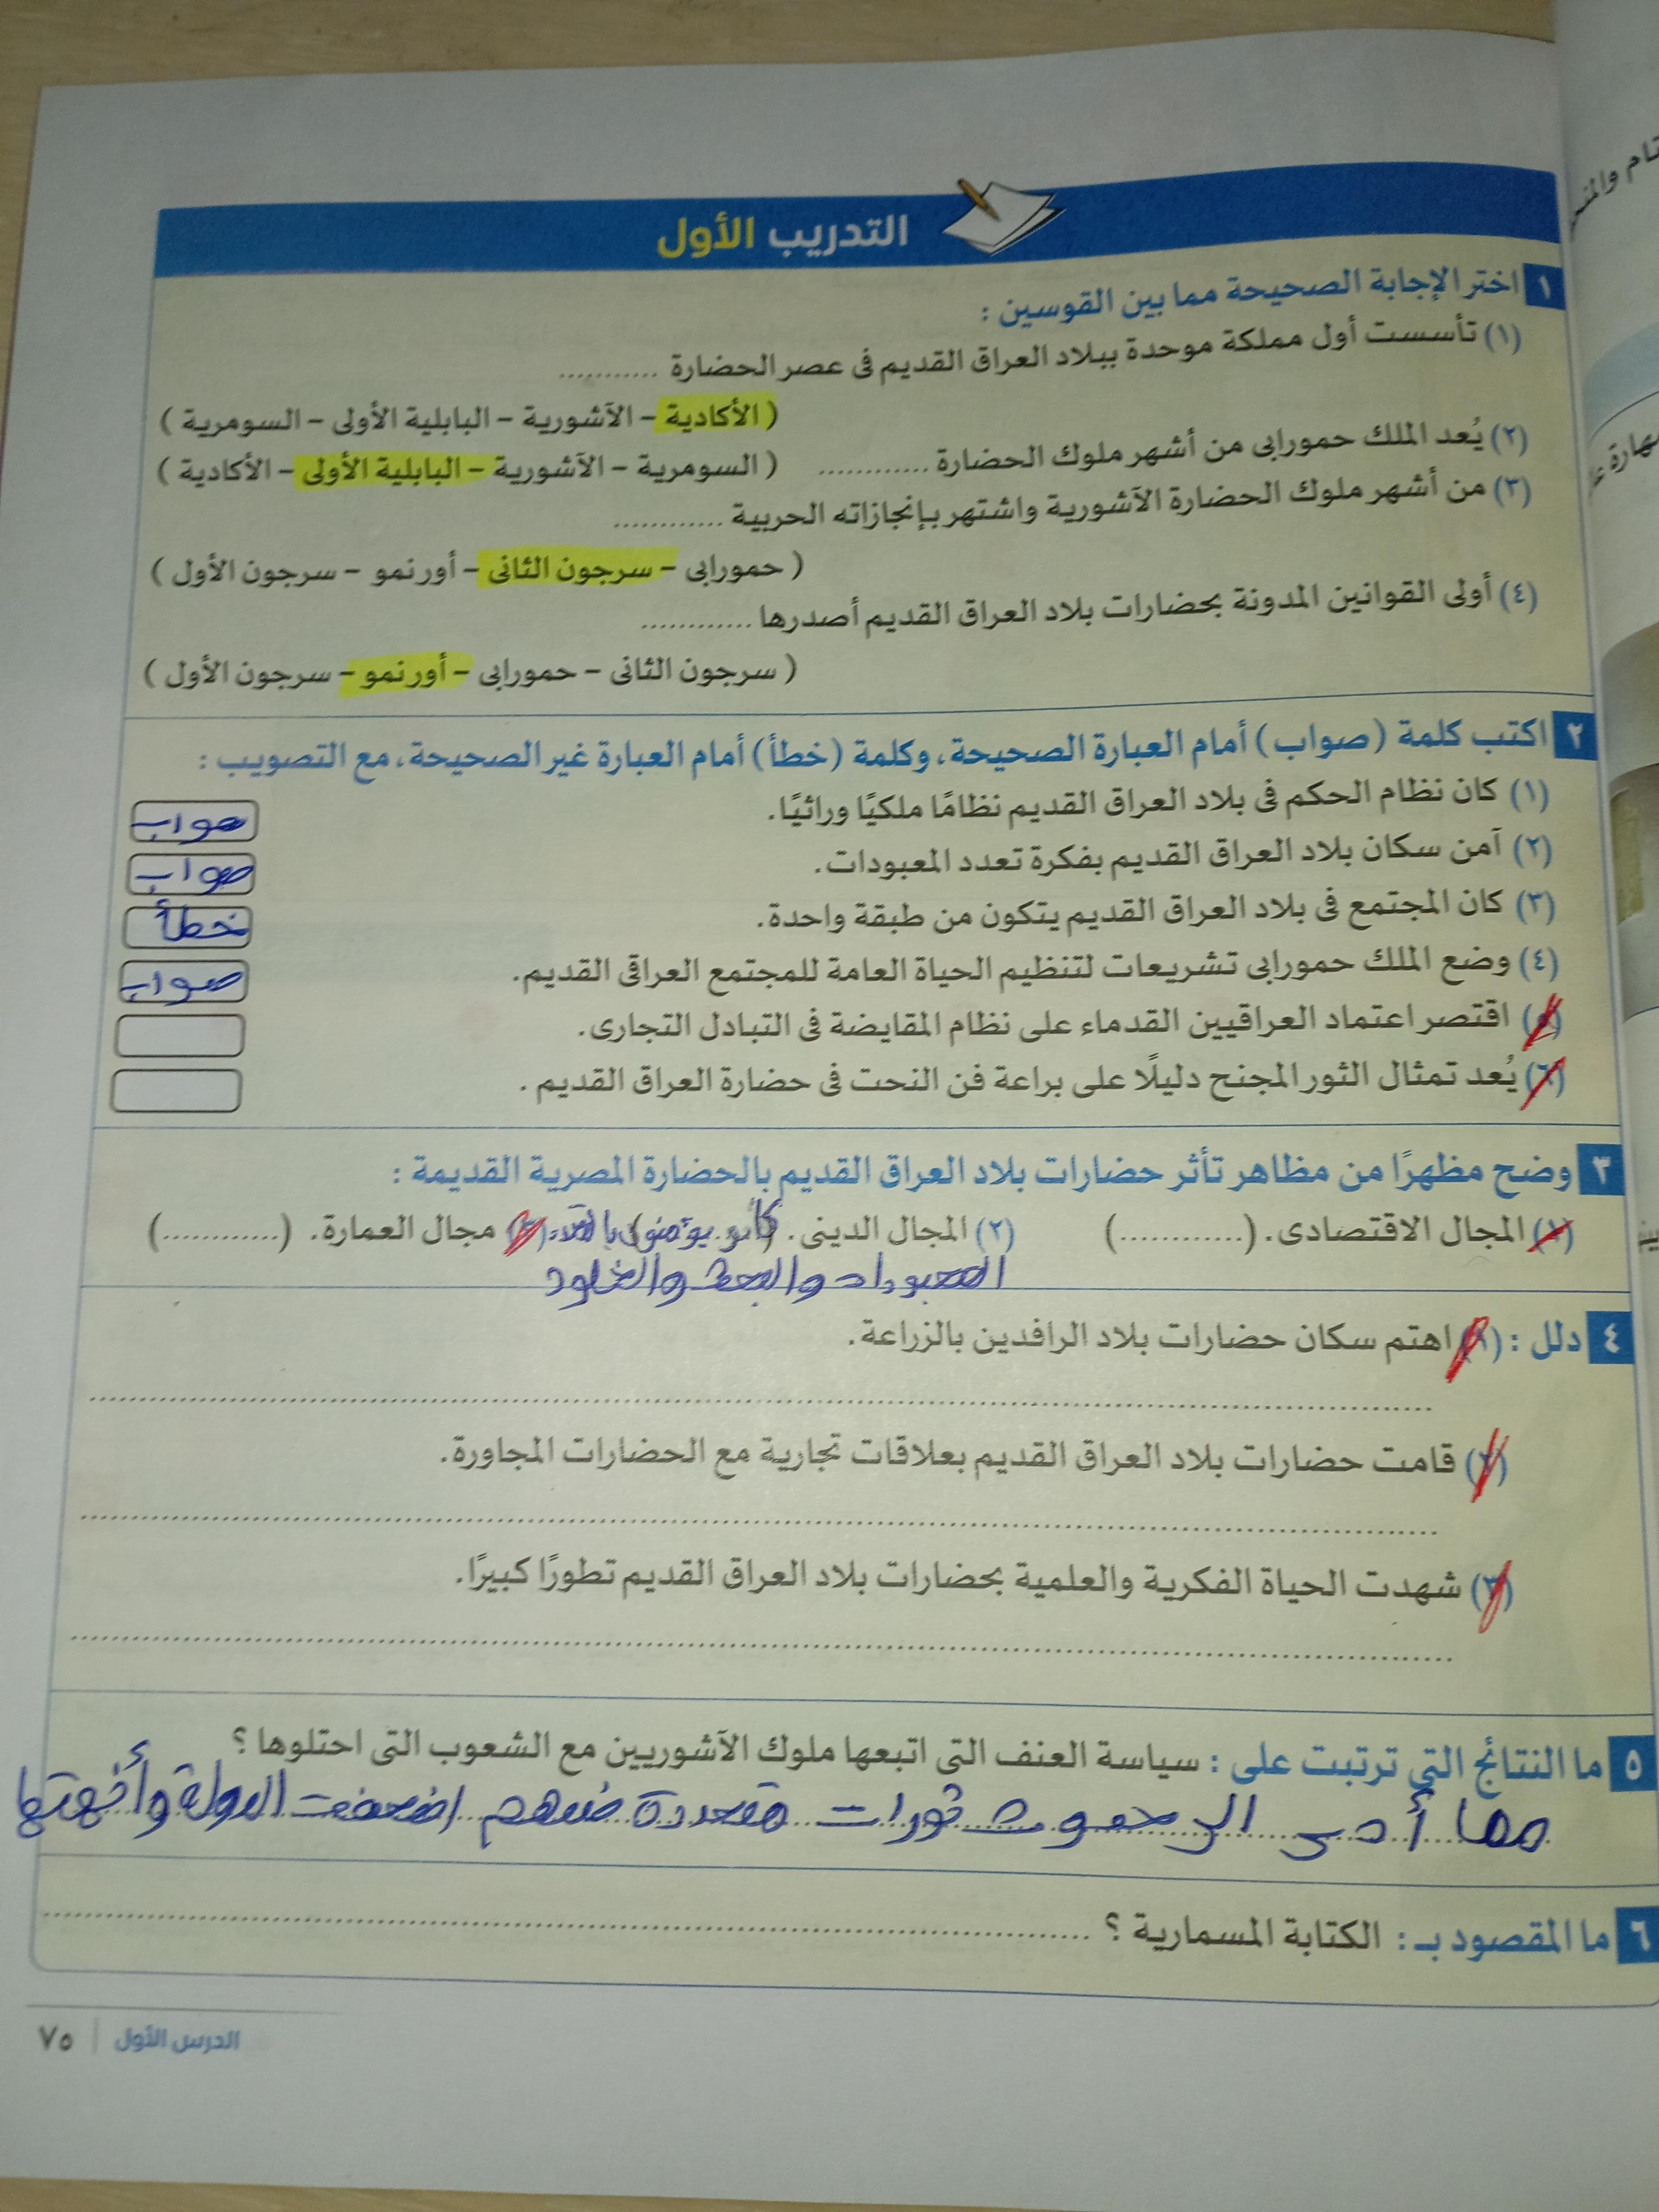 التدريب الأول
١ اختر الإجابة الصحيحة مما بين القوسين :
(١) تأسست أول مملكة موحدة ببلاد العراق القديم فى عصر الحضارة ............
( الأكادية – الآشورية – البابلية الأولى – السومرية )
(٢) يُعد الملك حمورابى من أشهر ملوك الحضارة ............ ( السومرية – الآشورية – البابلية الأولى – الأكادية )
(٣) من أشهر ملوك الحضارة الآشورية واشتهر بإنجازاته الحربية ............
( حمورابى – سرجون الثانى – أورنمو – سرجون الأول )
(٤) أولى القوانين المدونة بحضارات بلاد العراق القديم أصدرها ............
( سرجون الثانى – حمورابى – أورنمو – سرجون الأول )
٢ اكتب كلمة (صواب) أمام العبارة الصحيحة، وكلمة (خطأ) أمام العبارة غير الصحيحة، مع التصويب :
(١) كان نظام الحكم فى بلاد العراق القديم نظامًا ملكيًا وراثيًا. صواب
(٢) آمن سكان بلاد العراق القديم بفكرة تعدد المعبودات. صواب
(٣) كان المجتمع فى بلاد العراق القديم يتكون من طبقة واحدة. خطأ
(٤) وضع الملك حمورابى تشريعات لتنظيم الحياة العامة للمجتمع العراقى القديم. صواب
(٥) اقتصر اعتماد العراقيين القدماء على نظام المقايضة فى التبادل التجارى.
(٦) يُعد تمثال الثور المجنح دليلًا على براعة فن النحت فى حضارة العراق القديم .
٣ وضح مظهرًا من مظاهر تأثر حضارات بلاد العراق القديم بالحضارة المصرية القديمة :
(١) المجال الاقتصادى. (............) (٢) المجال الدينى. كانو يؤمنون (٣) مجال العمارة. (............)
المعبودات والبعث والخلود
٤ دلل : (١) اهتم سكان حضارات بلاد الرافدين بالزراعة.
(٢) قامت حضارات بلاد العراق القديم بعلاقات تجارية مع الحضارات المجاورة.
(٣) شهدت الحياة الفكرية والعلمية بحضارات بلاد العراق القديم تطورًا كبيرًا.
٥ ما النتائج التى ترتبت على : سياسة العنف التى اتبعها ملوك الآشوريين مع الشعوب التى احتلوها ؟
مما أدى الى حدوث ثورات متعددة ضدهم اضعفت الدولة وأنهتها
٦ ما المقصود بـ : الكتابة المسمارية ؟ ............
الدرس الأول | ٧٥